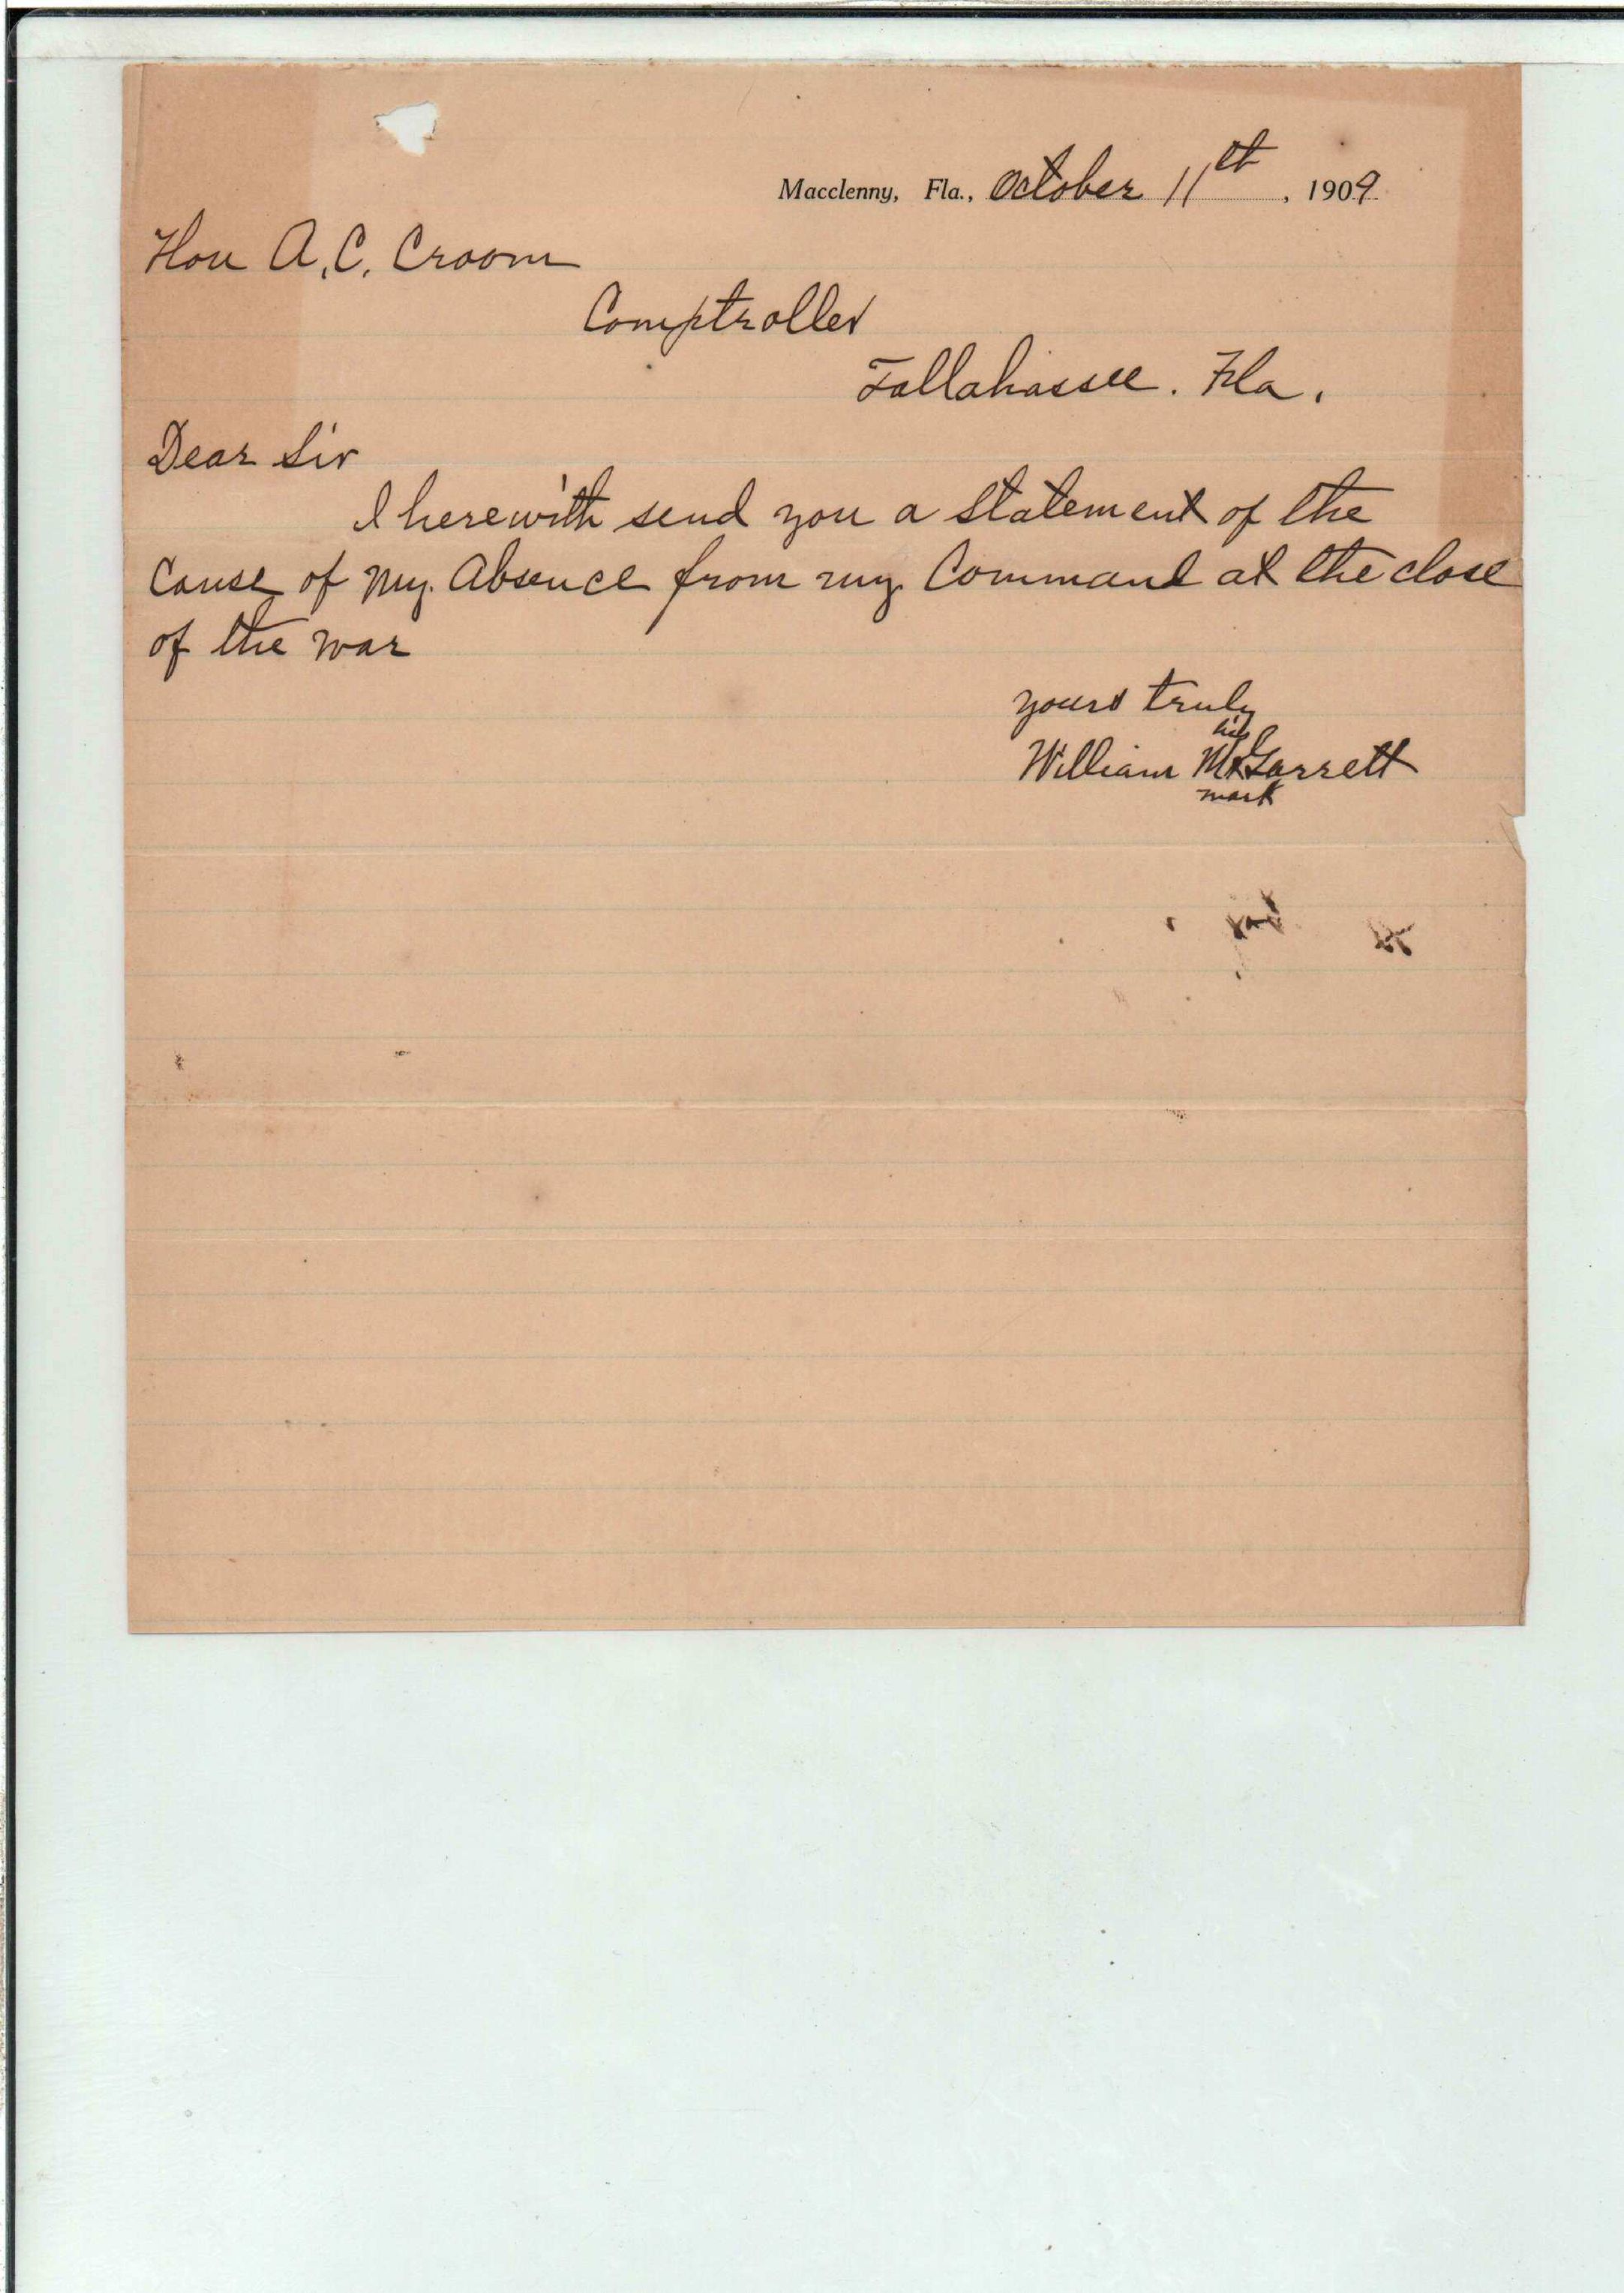 Macclenny, Fla., October 11th, 1909
Hon A.C. Croom
Comptroller
Tallahassee. Fla.
Dear Sir
I herewith send you a Statement of the
Cause of My. Absence from my Command at the close
of the war
yours truly
his
William M x Garrett
mark